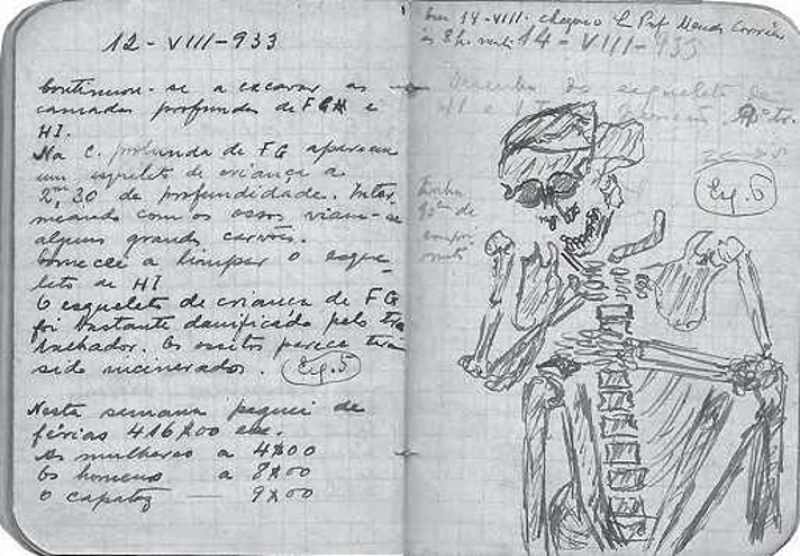 12-VIII-933
Continuou-se a excavar as
camadas profundas de FGH e
HI.
Na C. profunda de FG apareceu
um esqueleto de criança a
2,m30 de profundidade. Inter
meando com os ossos viam-se
alguns grandes carvões.
Comecei a limpar o esque-
leto de HI
O esqueleto de criança de FG
foi bastante danificado pelo tra
balhador. Os ossitos parece terem
sido incinerados. Esq. 5
Nesta semana paguei de
férias 416$00 esc.
As mulheres a 4$00
Os homens a 8$00
O capataz — 9$00
Em 14-VIII- chegou o Prof Mendes Corrêa
às 8 h.
14-VIII-933
Desenho do esqueleto de
Esq. 6
Tinha
de
compri
mento